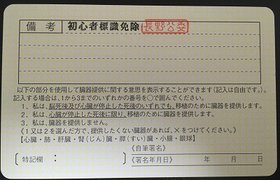 備考 初心者標識免除
以下の部分を使用して臓器提供に関する意思を表示することができます（記入は自由です。）
記入する場合は、1から3までのいずれかの番号を○で囲んでください。
1. 私は、脳死後及び心臓が停止した死後のいずれでも、移植のために臓器を提供します。
2. 私は、心臓が停止した死後に限り、移植のために臓器を提供します。
3. 私は、臓器を提供しません。
《1又は2を選んだ方で、提供したくない臓器があれば、×をつけてください。》
【心臓・肺・肝臓・腎（じん）臓・膵（すい）臓・小腸・眼球】
《自筆署名》
〔特記欄： 〕
《署名年月日》 年 月 日